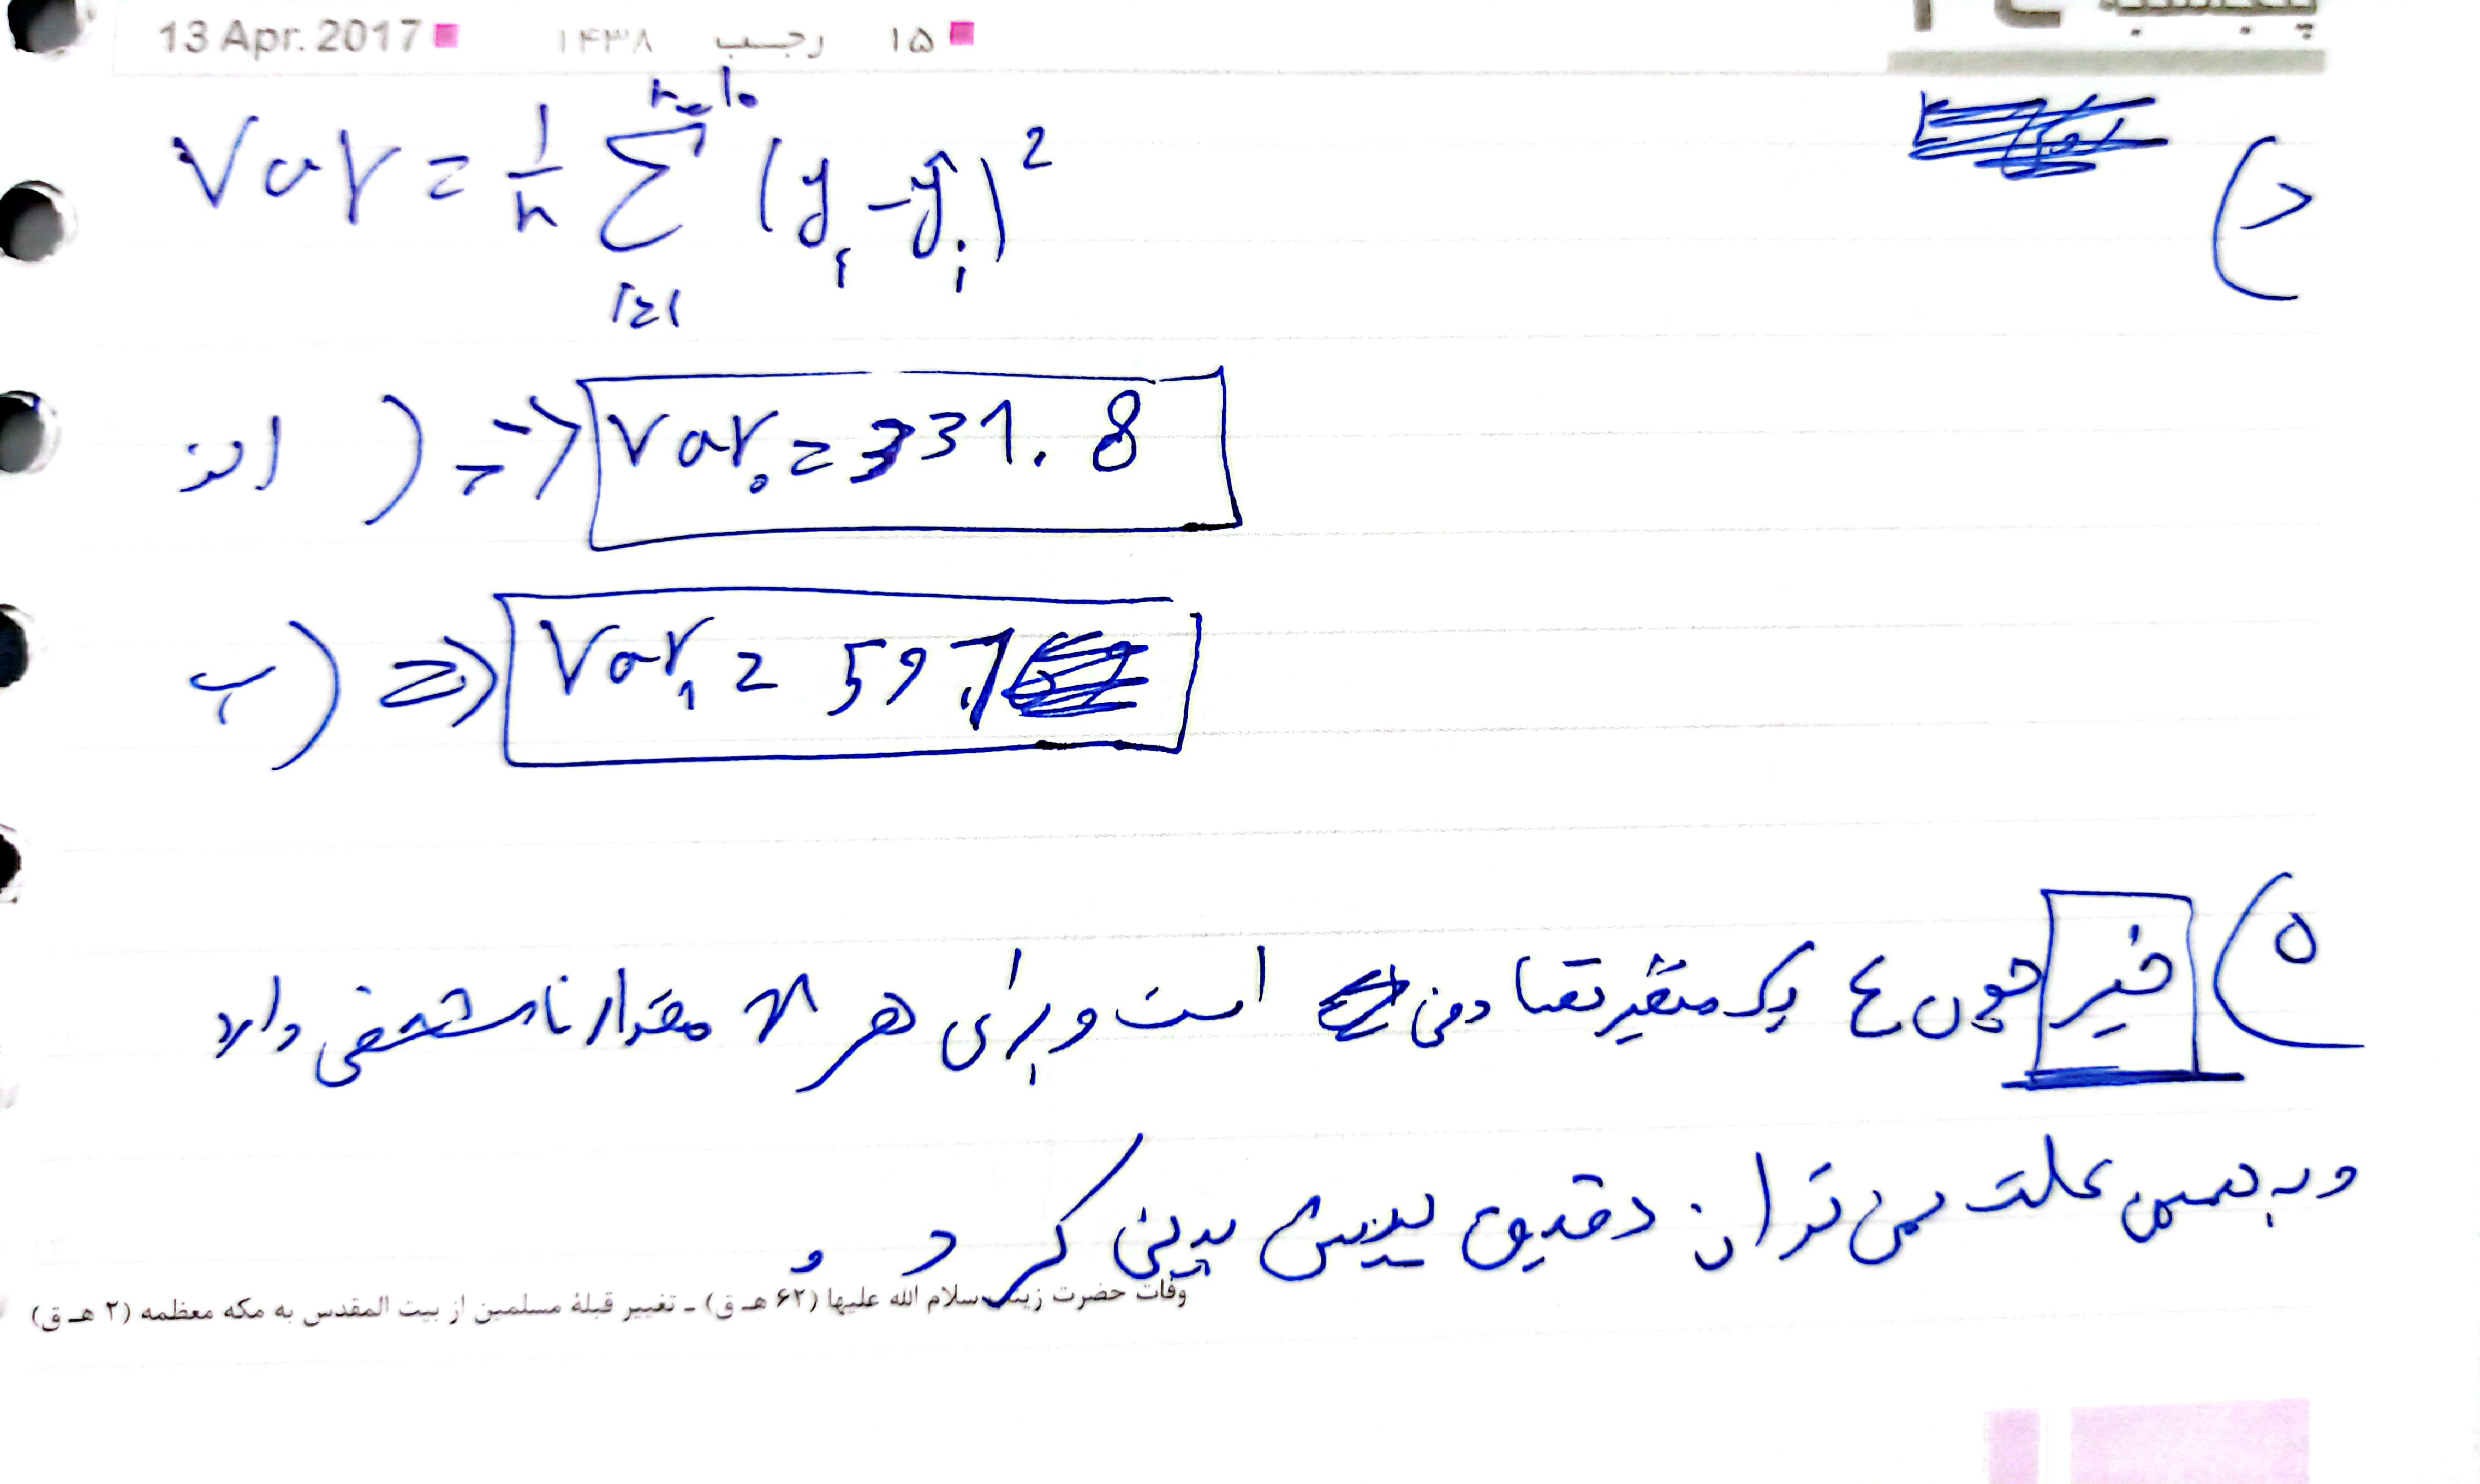 13 Apr. 2017 ۱۴۳۸ رجب ۱۵
Var = 1/n Σ (i=1, n=10) (yᵢ - ŷᵢ)²
الف) => Var₀ = 331.8
ب) => Var₁ = 59.7
۵) خیر چون ε یک متغیر تصادفی است و برای هر x مقدار نامشخصی دارد
و به همین علت نمی توان دقیق پیش بینی کرد و
وفات حضرت زینب سلام الله علیها (۶۲ هـ ق) ـ تغییر قبلهٔ مسلمین از بیت المقدس به مکه معظمه (۲ هـ ق)